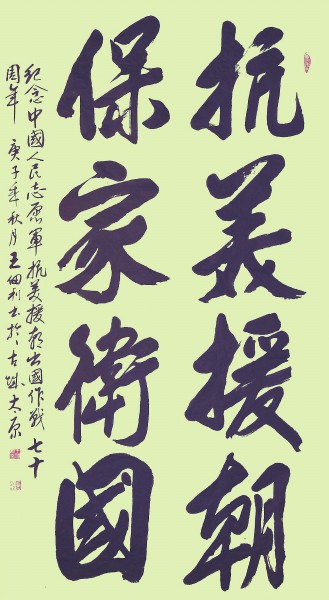 抗美援朝
保家衛國
纪念中國人民志愿軍抗美援朝出國作戰七十
周年 庚子年秋月王细利书於古城太原